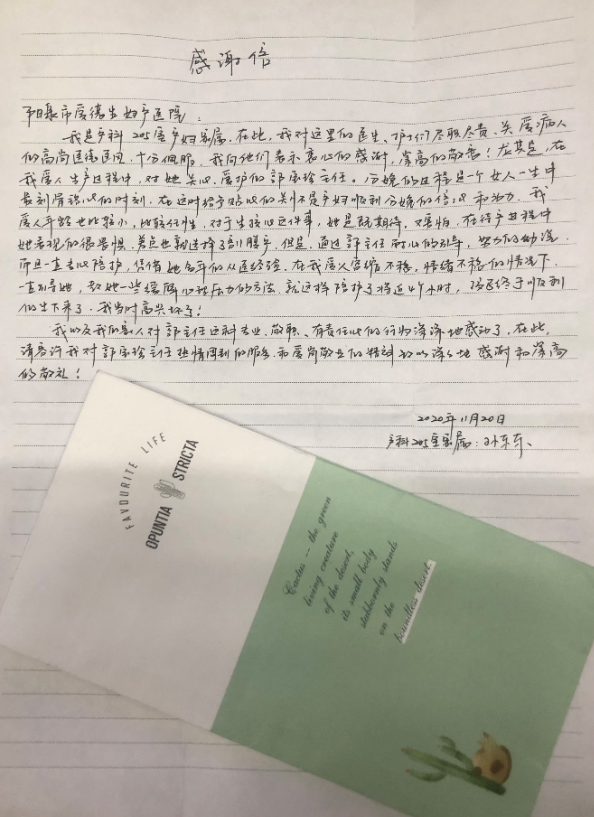 感谢信
阳泉市爱德生妇产医院：
我是产科205房产妇家属。在此，我对这里的医生、护士们尽职尽责、关爱病人
的高尚医德医风，十分佩服，我向他们表示衷心的感谢，崇高的敬意！尤其是，在
我爱人生产过程中，对她关心、爱护的郭主任。分娩的过程是一个女人一生中
最刻骨铭心的时刻，在这时给予贴心的关怀是产妇顺利分娩的信心和动力。我
爱人年龄也比较小，比较任性，对于生孩子这件事，她是既期待，又害怕，在待产过程中
她表现的很害怕，差点也就选择了剖腹手。但是，通过郭主任耐心的引导，努力的劝
而且一直在陪护，凭借她多年的从医经验，在我爱人宫缩不稳，情绪不稳的情况下，
一直引导她，教她一些缓解心理压力的方法，就这样陪护了将近4个小时，孩子终于顺利
的生下来了，我当时高兴坏了！
我以及我的家人对郭主任这种专业、敬职、有责任心的行为深深地感动了，在此，
请容许我对郭主任热情周到的服务和爱岗敬业的精神致以深深地感谢和崇高
的敬礼！
2020年11月20日
产科205室家属：孙东东、
FAVOURITE LIFE
OPUNTIA STRICTA
Cactus — the green
living creature
of the desert,
its small body
stubbornly stands
on the
boundless desert.